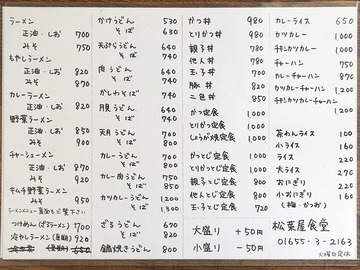 ラーメン
正油・しお 700
みそ 750
もやしラーメン
正油・しお 820
みそ 870
カレーラーメン
正油・しお 820
野菜ラーメン
正油・しお 850
みそ 900
チャーシューメン
正油・しお 870
みそ 920
キムチ野菜ラーメン
950
つけめん
700
冷やしラーメン
920
かけうどん 530
そば 630
天ぷらうどん 640
そば 740
肉うどん 640
そば 740
かしわそば 740
月見うどん 640
そば 740
天月うどん 700
そば 800
カレーうどん 700
そば 800
カレー肉うどん 750
そば 850
カツカレーうどん 1200
そば 1300
ざるうどん 670
そば 670
鍋焼きうどん 800
かつ丼 980
とりかつ丼 980
親子丼 780
他人丼 780
玉子丼 700
豚丼 820
二色丼 850
かつ定食 1000
とりかつ定食 1000
しょうが焼定食 1000
かつとじ定食 1000
とりとじ定食 1000
親子とじ定食 800
他人とじ定食 800
玉子とじ定食 720
カレーライス 650
カツカレー 1,000
チキンカツカレー 1,000
チャーハン 750
カレーチャーハン 870
カツカレーチャーハン 1,200
チキンカツカレーチャーハン
1,200
茶わんライス 100
小ライス 160
ライス 220
大ライス 270
おにぎり 220
小おにぎり 160
(梅・かつお)
大盛り +50円
小盛り -50円
松葉屋食堂
01655-3-2163
火曜日定休